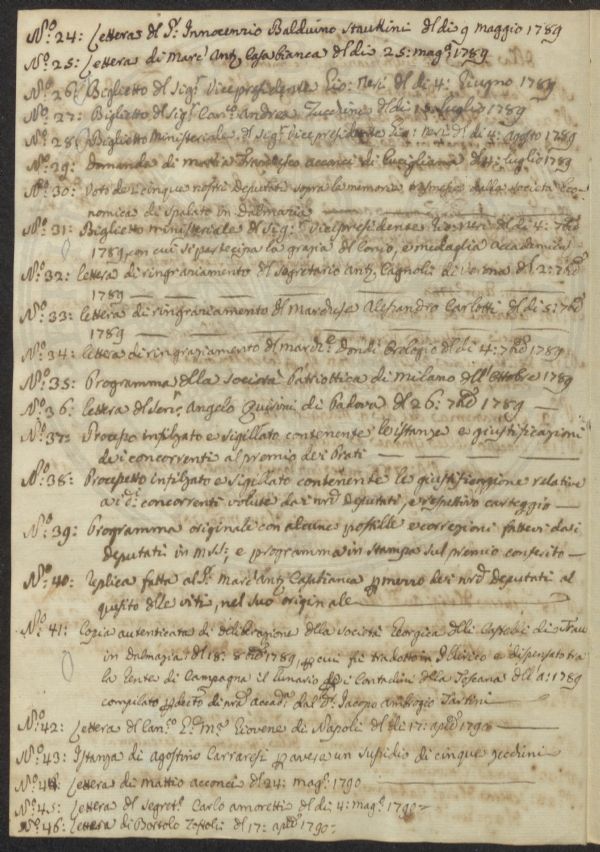 N.º 24: Lettera del S.r Innocenzio Balduino Stauttini del dì 9 maggio 1789
N.º 25: Lettera di Marc' Ant.º Casabianca del dì 25: mag.º 1789
N.º 26: Biglietto del Sig.r Vicepresidente Gio: Neri del dì 4: Giugno 1789
N.º 27: Biglietto del Sig.r Can.co Andrea Zucchini del dì Luglio 1789
N.º 28: Biglietto Ministeriale del Sig.r Vicepresidente Gio: Neri del dì 4: Agosto 1789
N.º 29: Domanda di Mattia Francesco Acconci di Lucigliana del luglio 1789
N.º 30: Voto de i cinque nostri Deputati sopra la memoria trasmessa dalla Società Eco-
nomica di Spalato in Dalmazia
N.º 31: Biglietto ministeriale del Sig.r Vicepresidente Gio: Neri del dì 4: 7bre
1789, con cui si partecipa la grazia del Conio, e medaglia Accademica
N.º 32: Lettera di ringraziamento del Segretario Ant.º Cagnoli di Verona del 2: 7bre
1789
N.º 33: Lettera di ringraziamento del Marchese Alessandro Carlotti del dì 5: 7bre
1789
N.º 34: Lettera di ringraziamento del March.e Dondi Orologio del dì 4: 7bre 1789
N.º 35: Programma della Società Patriottica di Milano dell' Ottobre 1789
N.º 36: Lettera del Sen.r Angelo Quirini di Padova del 26: 7bre 1789
N.º 37: Processo infilzato e sigillato contenente le istanze e giustificazioni
de i concorrenti al premio dei Prati
N.º 38: Processetto infilzato e sigillato contenente le giustificazione relative
a i d.i concorrenti volute da i nri Deputati, e respettivo carteggio
N.º 39: Programma originale con alcune postille e correzioni fattevi dai
deputati in mss:, e programma in stampa sul premio conferito
N.º 40: Replica fatta al S.r Marc' Ant.º Casabianca p mezzo dei nri Deputati al
quesito delle viti, nel suo originale
N.º 41: Copia autenticata di deliberazione della Società Georgica delli Castelli di Trau
in Dalmazia del 18: 8bre 1789, p cui fù tradotto in Illirico e dispensato tra
la Gente di Campagna il lunario p i Contadini della Toscana dell' a: 1789
compilato p detto di nri accad.i dal D.r Jacopo Ambrogio Tartini
N.º 42: Lettera del Can.º Giovene di Napoli del dì 17: aple 1790
N.º 43: Istanza di Agostino Carraresi p avere un sussidio di cinque zecchini
N.º 44: Lettera di Mattio Acconci del 24: mag.º 1790
N.º 45: Lettera del Segret.º Carlo Amoretti del dì 4: mag.º 1790
N.º 46: Lettera di Bortolo del 17: aple 1790